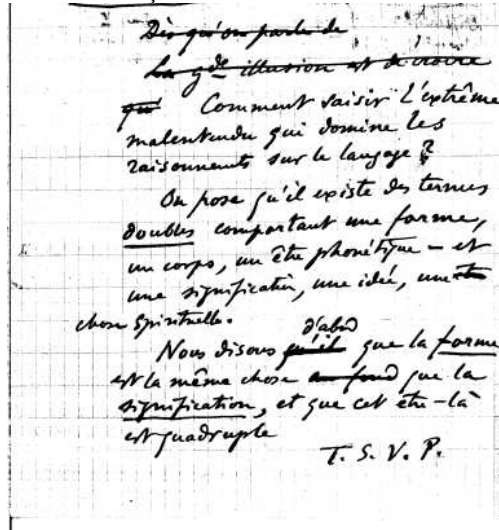 Dès qu'on parle de
La gde illusion est de croire
que Comment saisir l'extrême
malentendu qui domine les
raisonnements sur le langage ?
On pose qu'il existe des termes
doubles comportant une forme,
un corps, un être phonétique – et
une signification, une idée, une
chose spirituelle.
Nous disons qu'il d'abord que la forme
est la même chose au fond que la
signification, et que cet être-là
est quadruple
T. S. V. P.